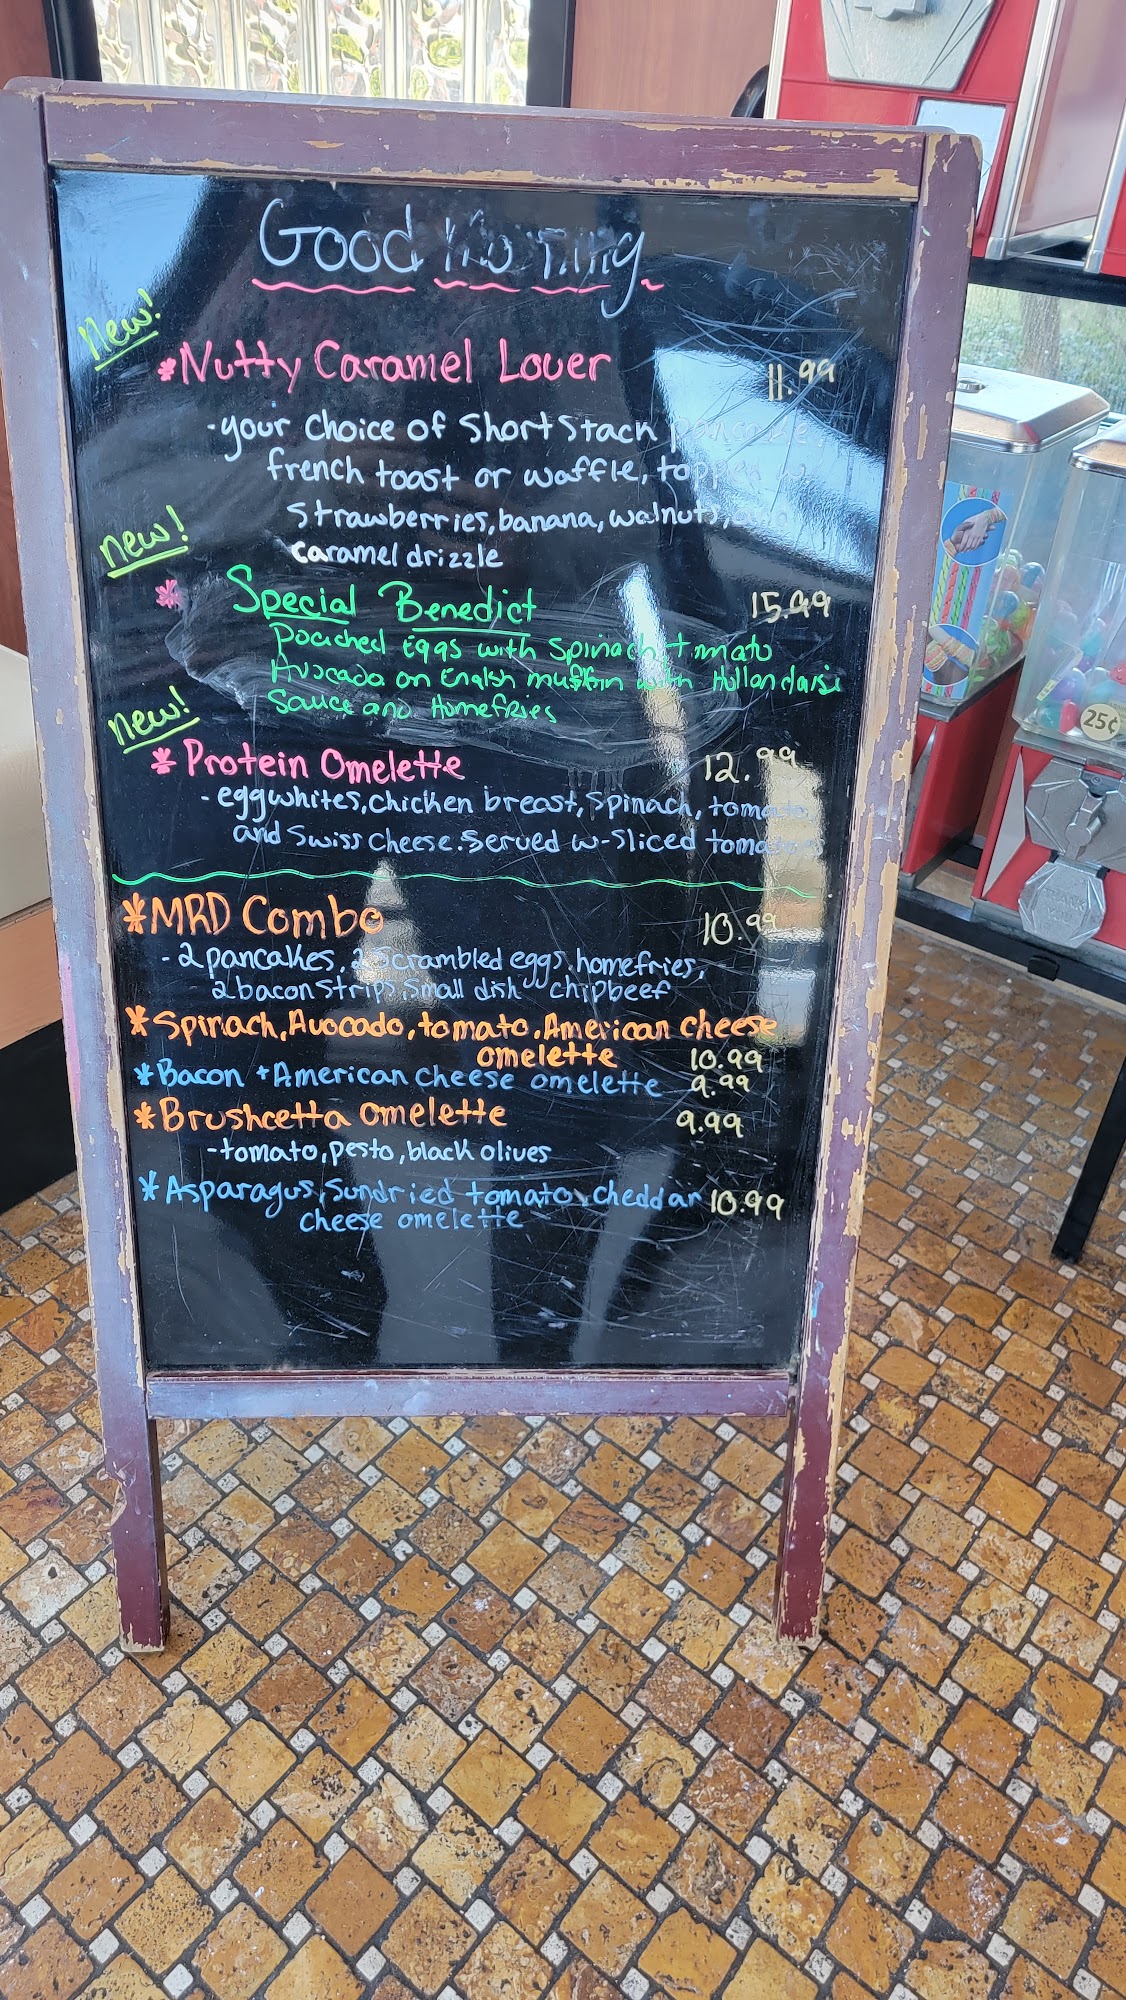 Good Morning
new!
*Nutty Caramel Lover 11.99
-your choice of Short Stack pancake,
french toast or waffle, topped w-
strawberries, banana, walnuts, and
caramel drizzle
new!
* Special Benedict 15.99
Poached Eggs with Spinach + mato
Avocado on English muffin with Hollandaise
Sauce and Homefries
new!
* Protein Omelette 12.99
- eggwhites, chicken breast, spinach, tomato,
and Swiss Cheese. Served w-Sliced tomatoes
*MRD Combo 10.99
- 2 pancakes, 2 scrambled eggs, homefries,
2 bacon strips, small dish chipbeef
*Spinach, Avocado, tomato, American cheese
omelette 10.99
*Bacon + American cheese omelette 9.99
*Brushcetta omelette 9.99
-tomato, pesto, black olives
*Asparagus, Sundried tomato, cheddar 10.99
cheese omelette
25¢